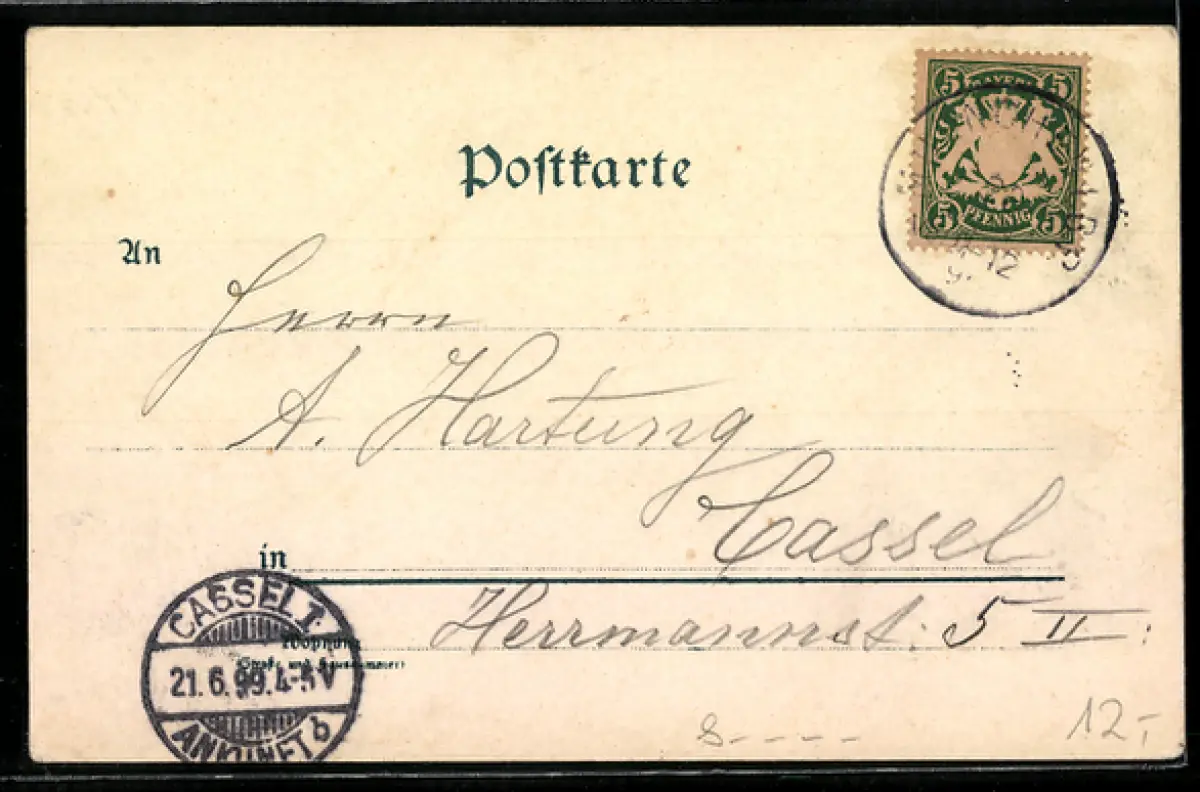 5 BAYERN 5
5 PFENNIG 5
12
Postkarte
An
Herrn
A. Hartung
Cassel
in
Herrmannst. 5 II
Wohnung
(Straße und Hausnummer)
CASSEL 1.
21.6.99.4-5V
ANKUNFT b
12,-